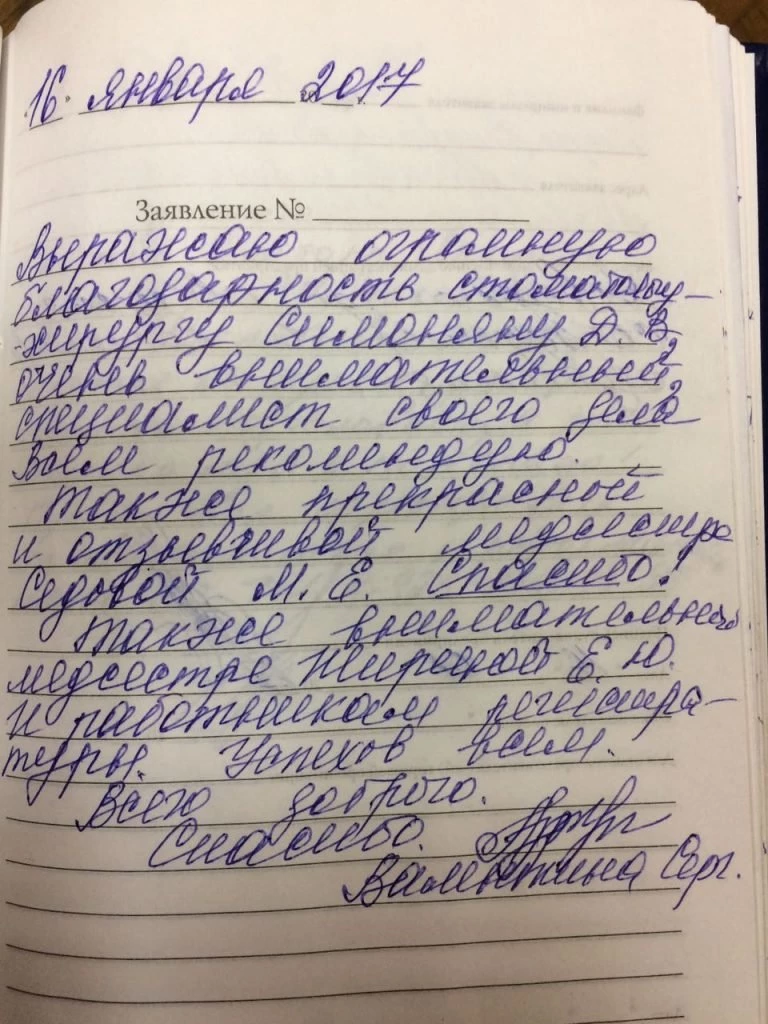 16 января 2017
Заявление №
Выражаю огромную
благодарность стоматологу-
хирургу Симоняну Д. В,
очень внимательный,
специалист своего дела
Всем рекомендую.
Также прекрасной
и отзывчивой медсестре
Седовой М. Е. Спасибо!
Также внимательной
медсестре Е. Ю.
и работникам регистра-
туры. Успехов всем.
Всего доброго.
Спасибо.
Валентина Серг.